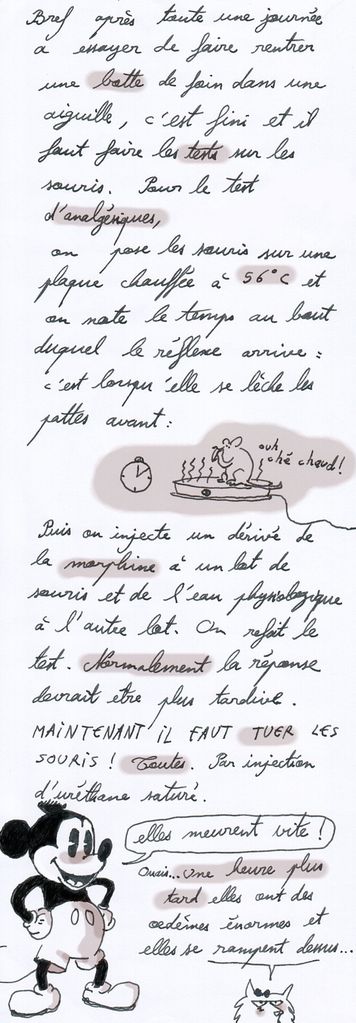 Bref après toute une journée
a essayer de faire rentrer
une botte de foin dans une
aiguille, c'est fini et il
faut faire les tests sur les
souris. Pour le test
d'analgésiques,
on pose les souris sur une
plaque chauffée à 56°C et
on note le temps au bout
duquel le réflexe arrive :
c'est lorsqu'elle se lèche les
pattes avant :
ouh
ché chaud!
Puis on injecte un dérivé de
la morphine à un lot de
souris et de l'eau physiologique
à l'autre lot. On refait le
test. Normalement la réponse
devrait etre plus tardive.
MAINTENANT IL FAUT TUER LES
SOURIS ! Toutes. Par injection
d'uréthane saturé.
elles meurent vite !
Ouais... une heure plus
tard elles ont des
oedèmes énormes et
elles se rampent dessus...